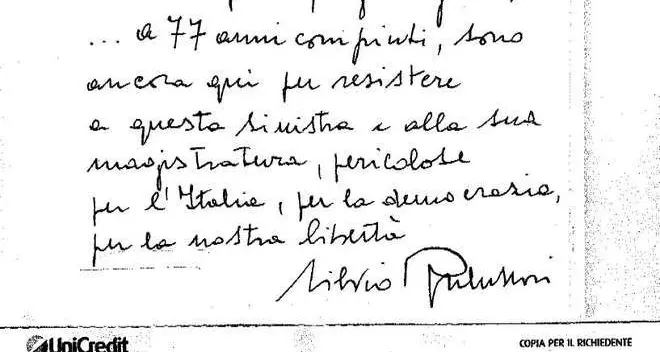 ... a 77 anni compiuti, sono
ancora qui per resistere
a questa sinistra e alla sua
magistratura, pericolose
per l'Italia, per la democrazia,
per la nostra libertà
Silvio Berlusconi
UniCredit
COPIA PER IL RICHIEDENTE